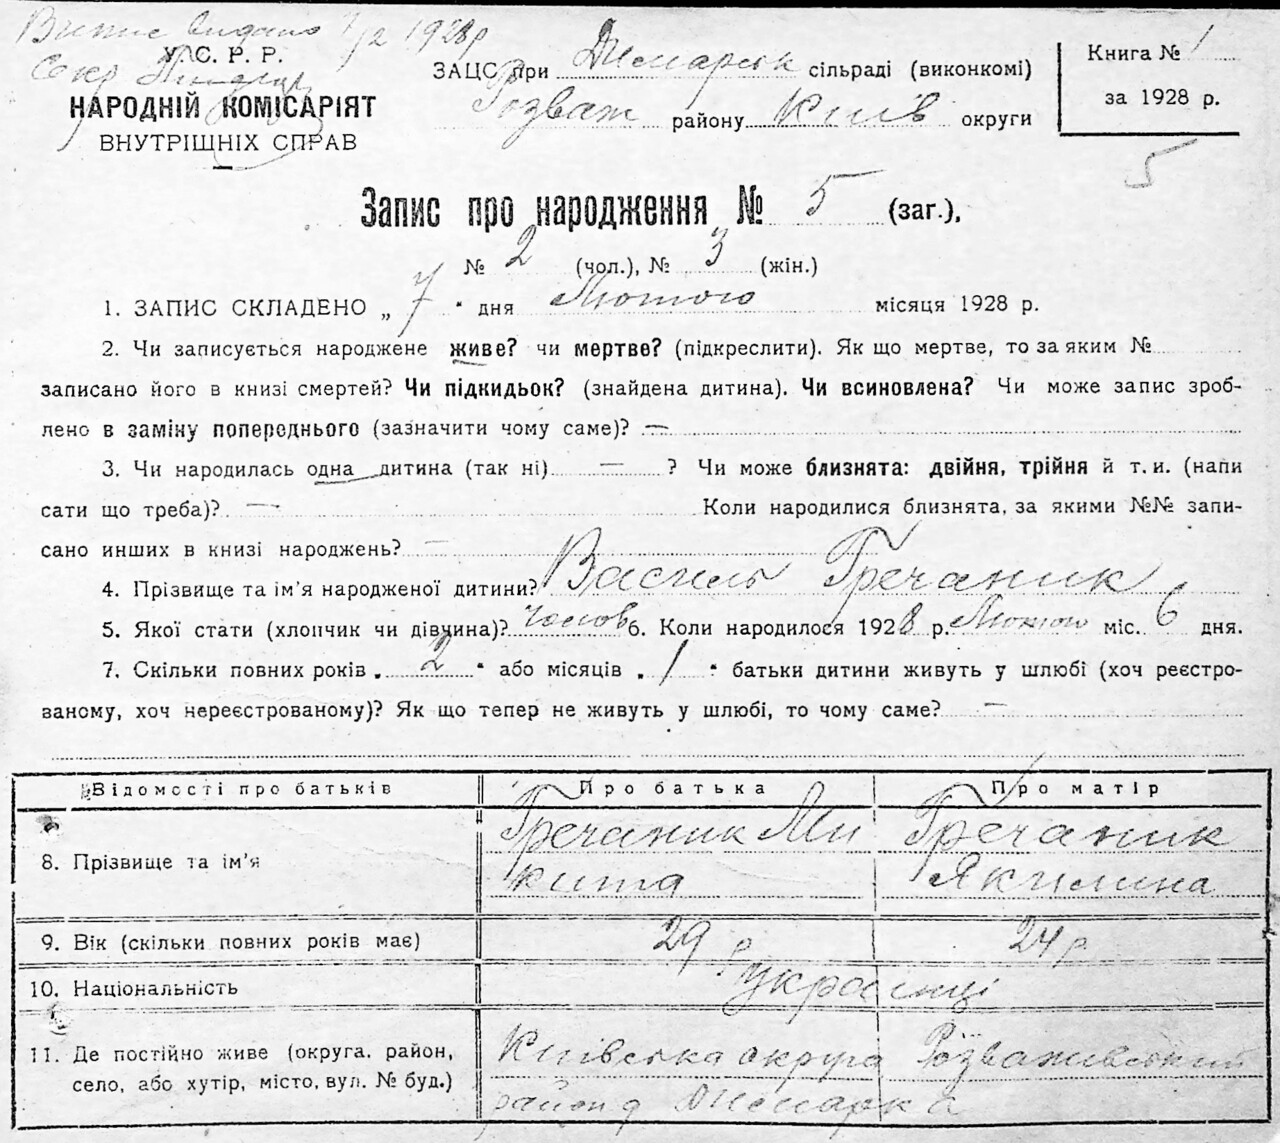 Випис видано 7/2 1928 р
Секр
У. С. Р. Р.
НАРОДНІЙ КОМІСАРІЯТ
ВНУТРІШНІХ СПРАВ
ЗАЦС при Димарськ сільраді (виконкомі)
Розваж району Київ округи
Книга № 1
за 1928 р.
5
Запис про народження № 5 (заг.),
№ 2 (чол.), № 3 (жін.)
1. ЗАПИС СКЛАДЕНО „ 7 " дня Лютого місяця 1928 р.
2. Чи записується народжене живе? чи мертве? (підкреслити). Як що мертве, то за яким №
записано його в книзі смертей? Чи підкидьок? (знайдена дитина). Чи всиновлена? Чи може запис зроб-
лено в заміну попереднього (зазначити чому саме)? —
3. Чи народилась одна дитина (так ні) — ? Чи може близнята: двійня, трійня й т. и. (напи
сати що треба)? — Коли народилися близнята, за якими №№ запи-
сано инших в книзі народжень? —
4. Прізвище та ім'я народженої дитини? Василь Гречаник
5. Якої стати (хлопчик чи дівчина)? Чолов 6. Коли народилося 1928 р. Лютого міс. 6 дня.
7. Скільки повних років „ 2 " або місяців „ 1 " батьки дитини живуть у шлюбі (хоч реєстро-
ваному, хоч нереєстрованому)? Як що тепер не живуть у шлюбі, то чому саме? —
Відомості про батьків Про батька Про матір
8. Прізвище та ім'я Гречаник Ми Гречаник
кита Якилина
9. Вік (скільки повних років має) 29 р 24 р
10. Національність Українці
11. Де постійно живе (округа. район, Київська округа Розважівський
село, або хутір, місто, вул. № буд.) район д Димарка